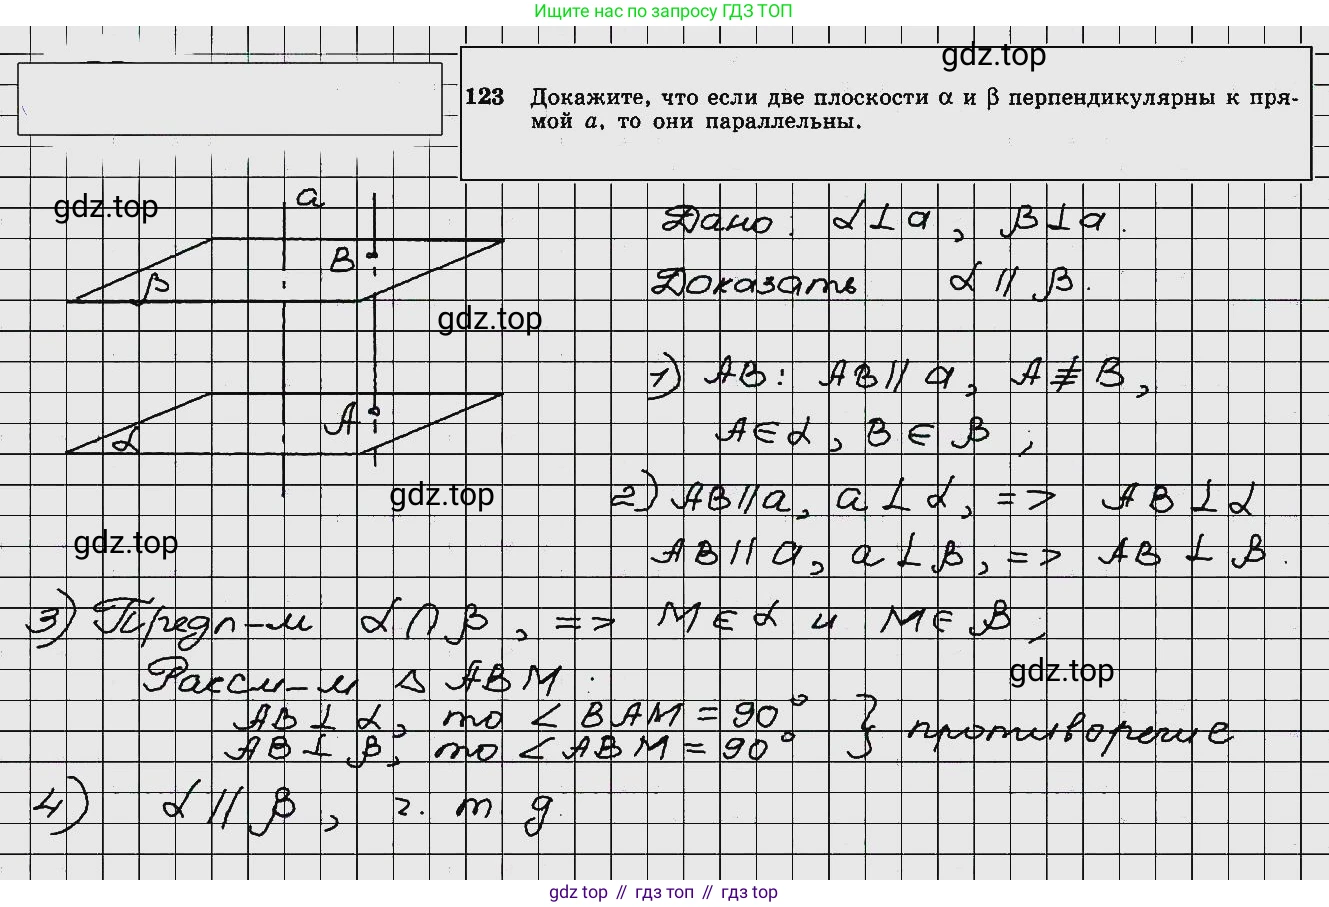 Ищите нас по запросу ГДЗ ТОП
gdz.top
123 Докажите, что если две плоскости α и β перпендикулярны к пря-
мой a, то они параллельны.
gdz.top
a
B
β
gdz.top
A
α
gdz.top
gdz.top
Дано: α⊥a, β⊥a.
Доказать α || β.
1) AB: AB || a, A ≢ B,
A∈α, B∈β;
2) AB||a, a⊥α, => AB⊥α
AB||a, a⊥β, => AB⊥β.
3) Предп-м α∩β, => M∈α и M∈β,
gdz.top
Рассм-м △ABM.
AB⊥α, то ∠BAM = 90°
AB⊥β, то ∠ABM = 90° } противоречие
4) α || β, ч. т д.
gdz top // гдз топ // gdz top